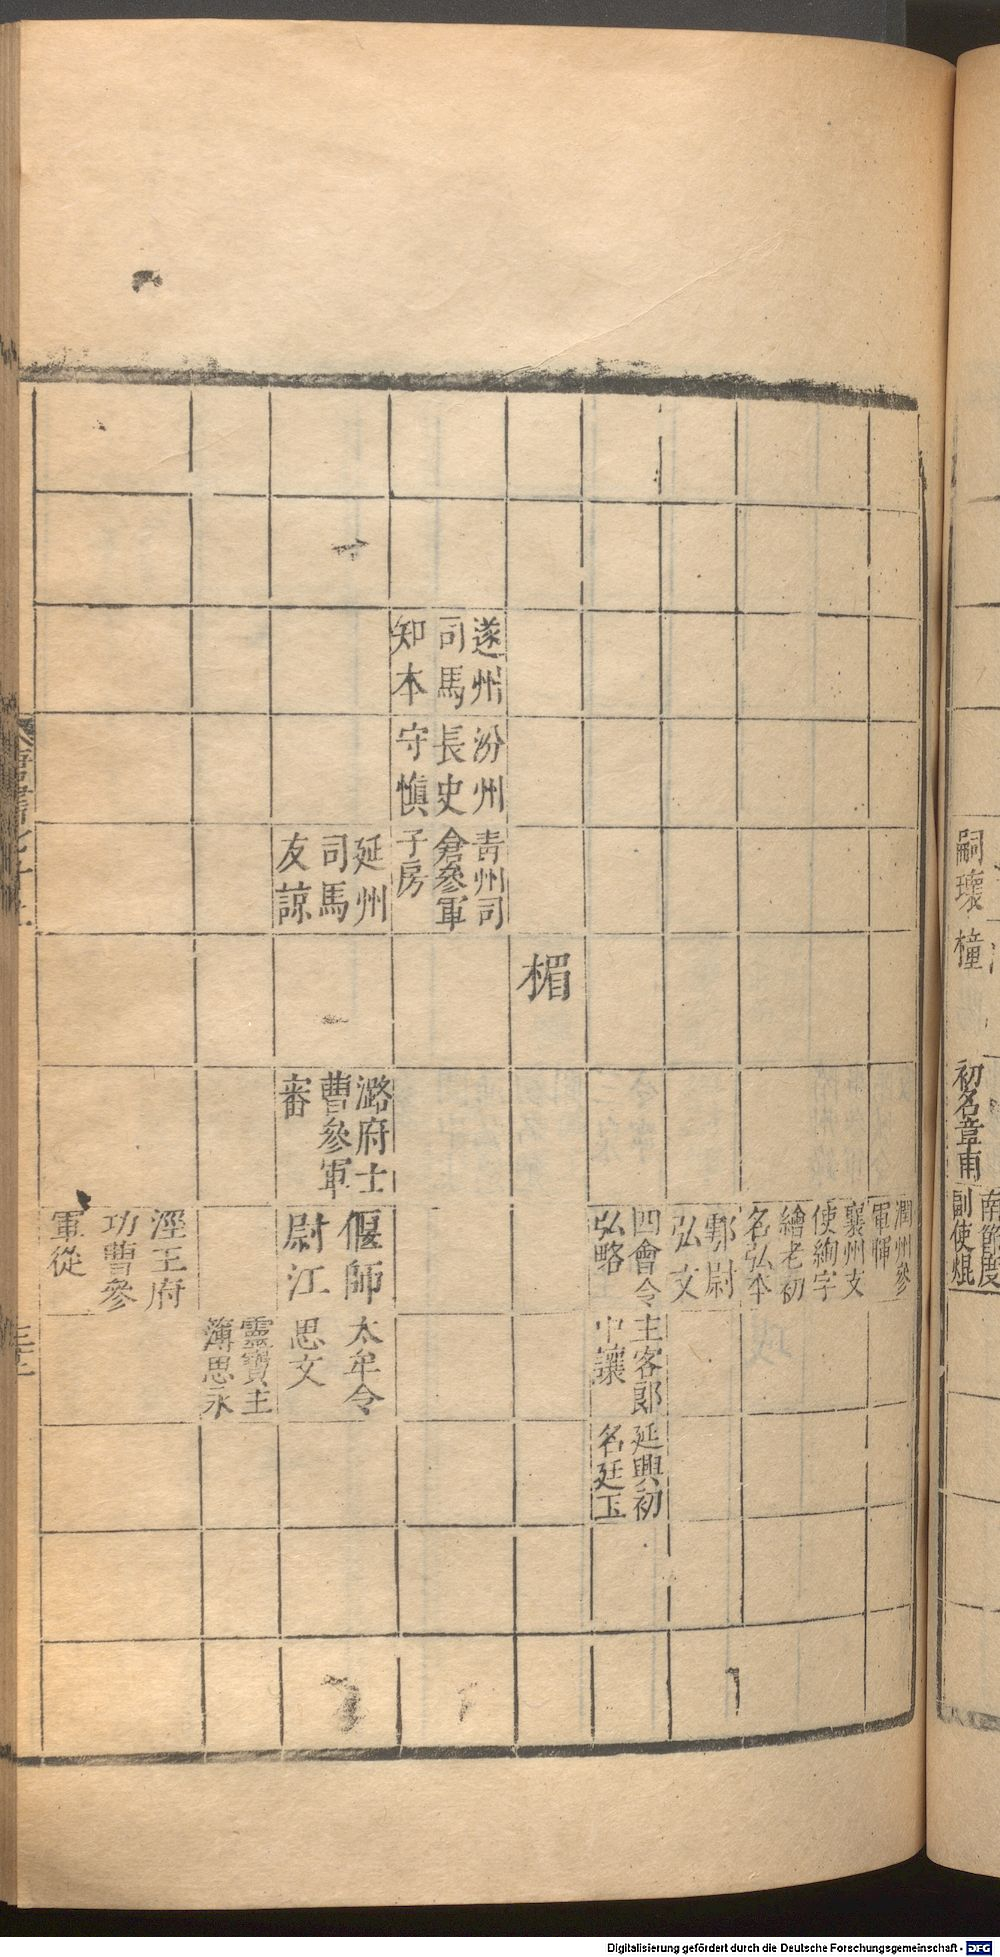 嗣瓌
橦
初名章甫
南節度
副使焜
潤州參
軍惲
襄州支
使絢字
繪老初
名弘本
鄠尉
弘文
四會令
弘略
主客郎
中讓
延興初
名廷玉
楣
遂州
司馬
知本
汾州
長史
守慎
青州司
倉參軍
子房
延州
司馬
友諒
潞府士
曹參軍
審
偃師
尉江
太牟令
思文
靈寶主
簿思永
涇王府
功曹參
軍從
Digitalisierung gefördert durch die Deutsche Forschungsgemeinschaft - DFG